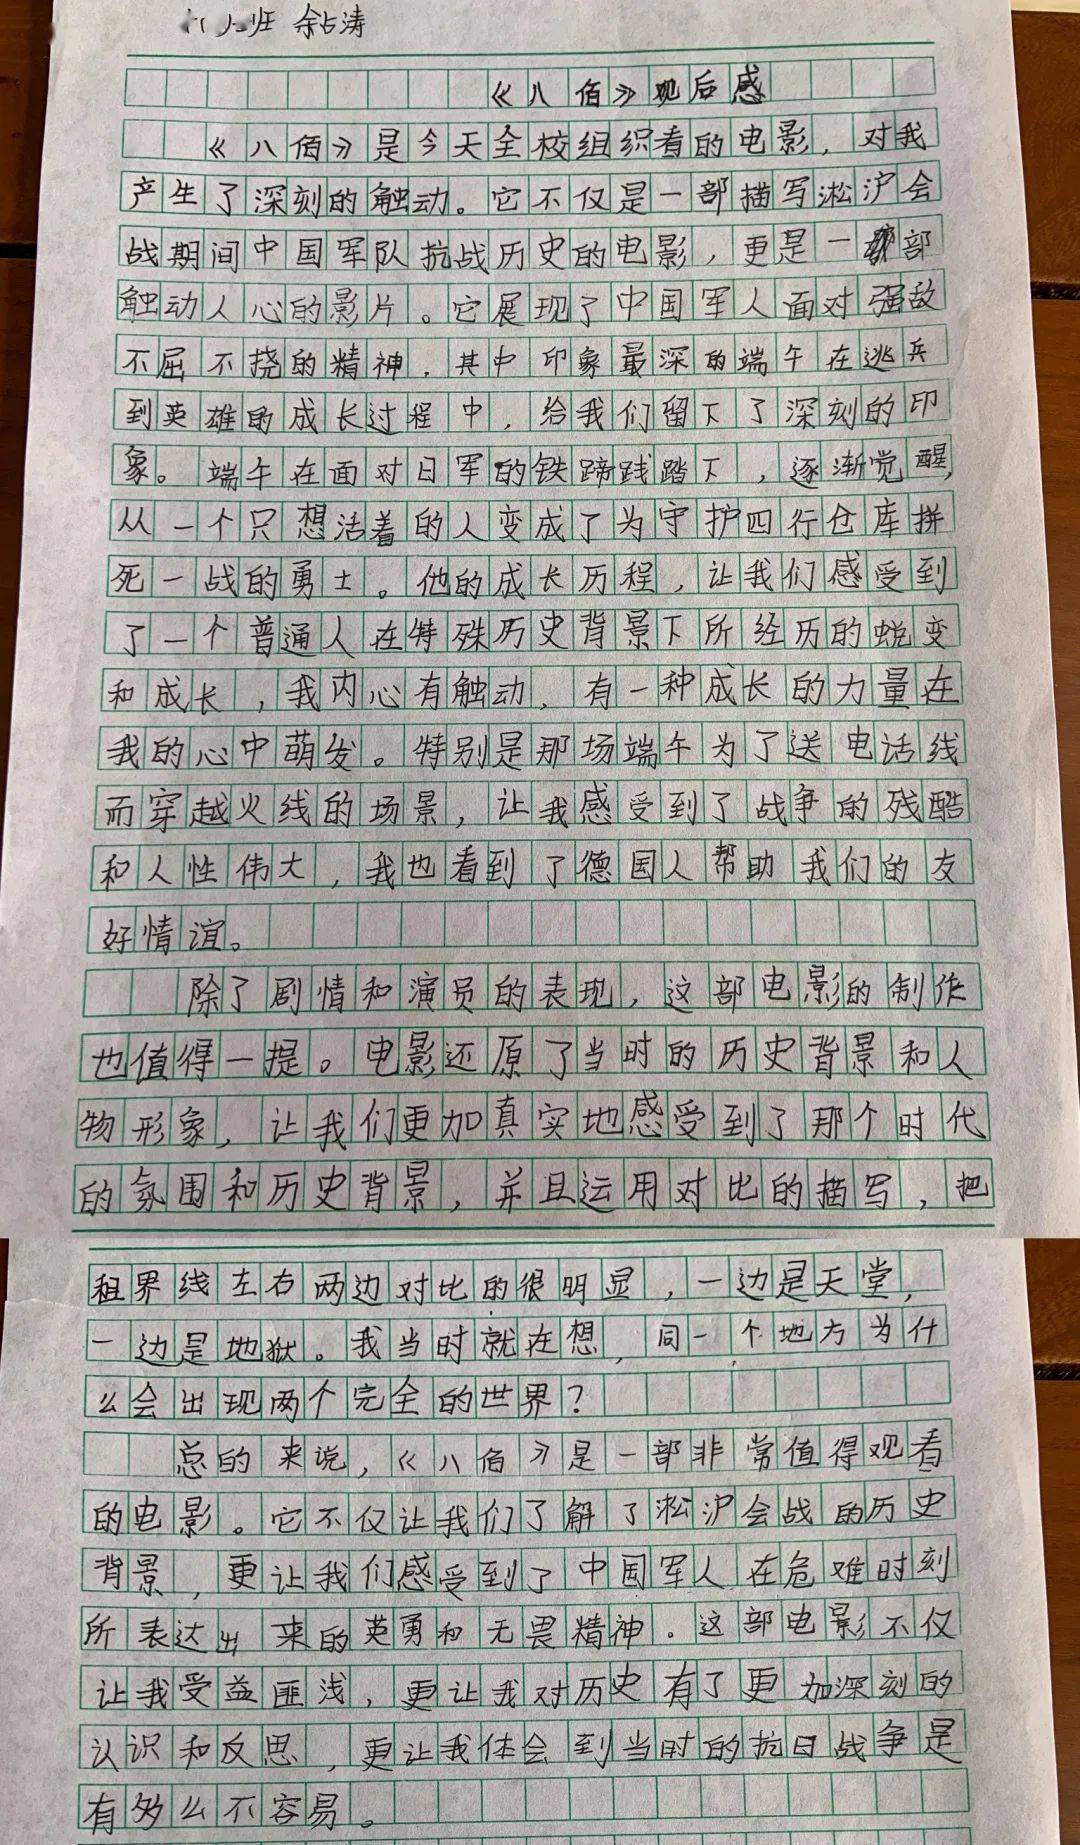 班 余占涛
《八佰》观后感
《八佰》是今天全校组织看的电影，对我
产生了深刻的触动。它不仅是一部描写淞沪会
战期间中国军队抗战历史的电影，更是一部
触动人心的影片。它展现了中国军人面对强敌
不屈不挠的精神，其中印象最深的端午在逃兵
到英雄的成长过程中，给我们留下了深刻的印
象。端午在面对日军的铁蹄践踏下，逐渐觉醒，
从一个只想活着的人变成了为守护四行仓库拼
死一战的勇士。他的成长历程，让我们感受到
了一个普通人在特殊历史背景下所经历的蜕变
和成长，我内心有触动，有一种成长的力量在
我的心中萌发。特别是那场端午为了送电话线
而穿越火线的场景，让我感受到了战争的残酷
和人性伟大，我也看到了德国人帮助我们的友
好情谊。
除了剧情和演员的表现，这部电影的制作
也值得一提。电影还原了当时的历史背景和人
物形象，让我们更加真实地感受到了那个时代
的氛围和历史背景，并且运用对比的描写，把
租界线左右两边对比的很明显，一边是天堂，
一边是地狱。我当时就在想，同一个地方为什
么会出现两个完全的世界？
总的来说，《八佰》是一部非常值得观看
的电影。它不仅让我们了解了淞沪会战的历史
背景，更让我们感受到了中国军人在危难时刻
所表达出来的英勇和无畏精神。这部电影不仅
让我受益匪浅，更让我对历史有了更加深刻的
认识和反思，更让我体会到当时的抗日战争是
有多么不容易。